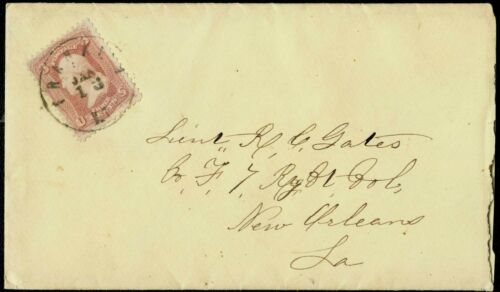 JAN
Lieut. R. C. Gates
Co. F, 7 Regt Vt. Vols,
New Orleans
La